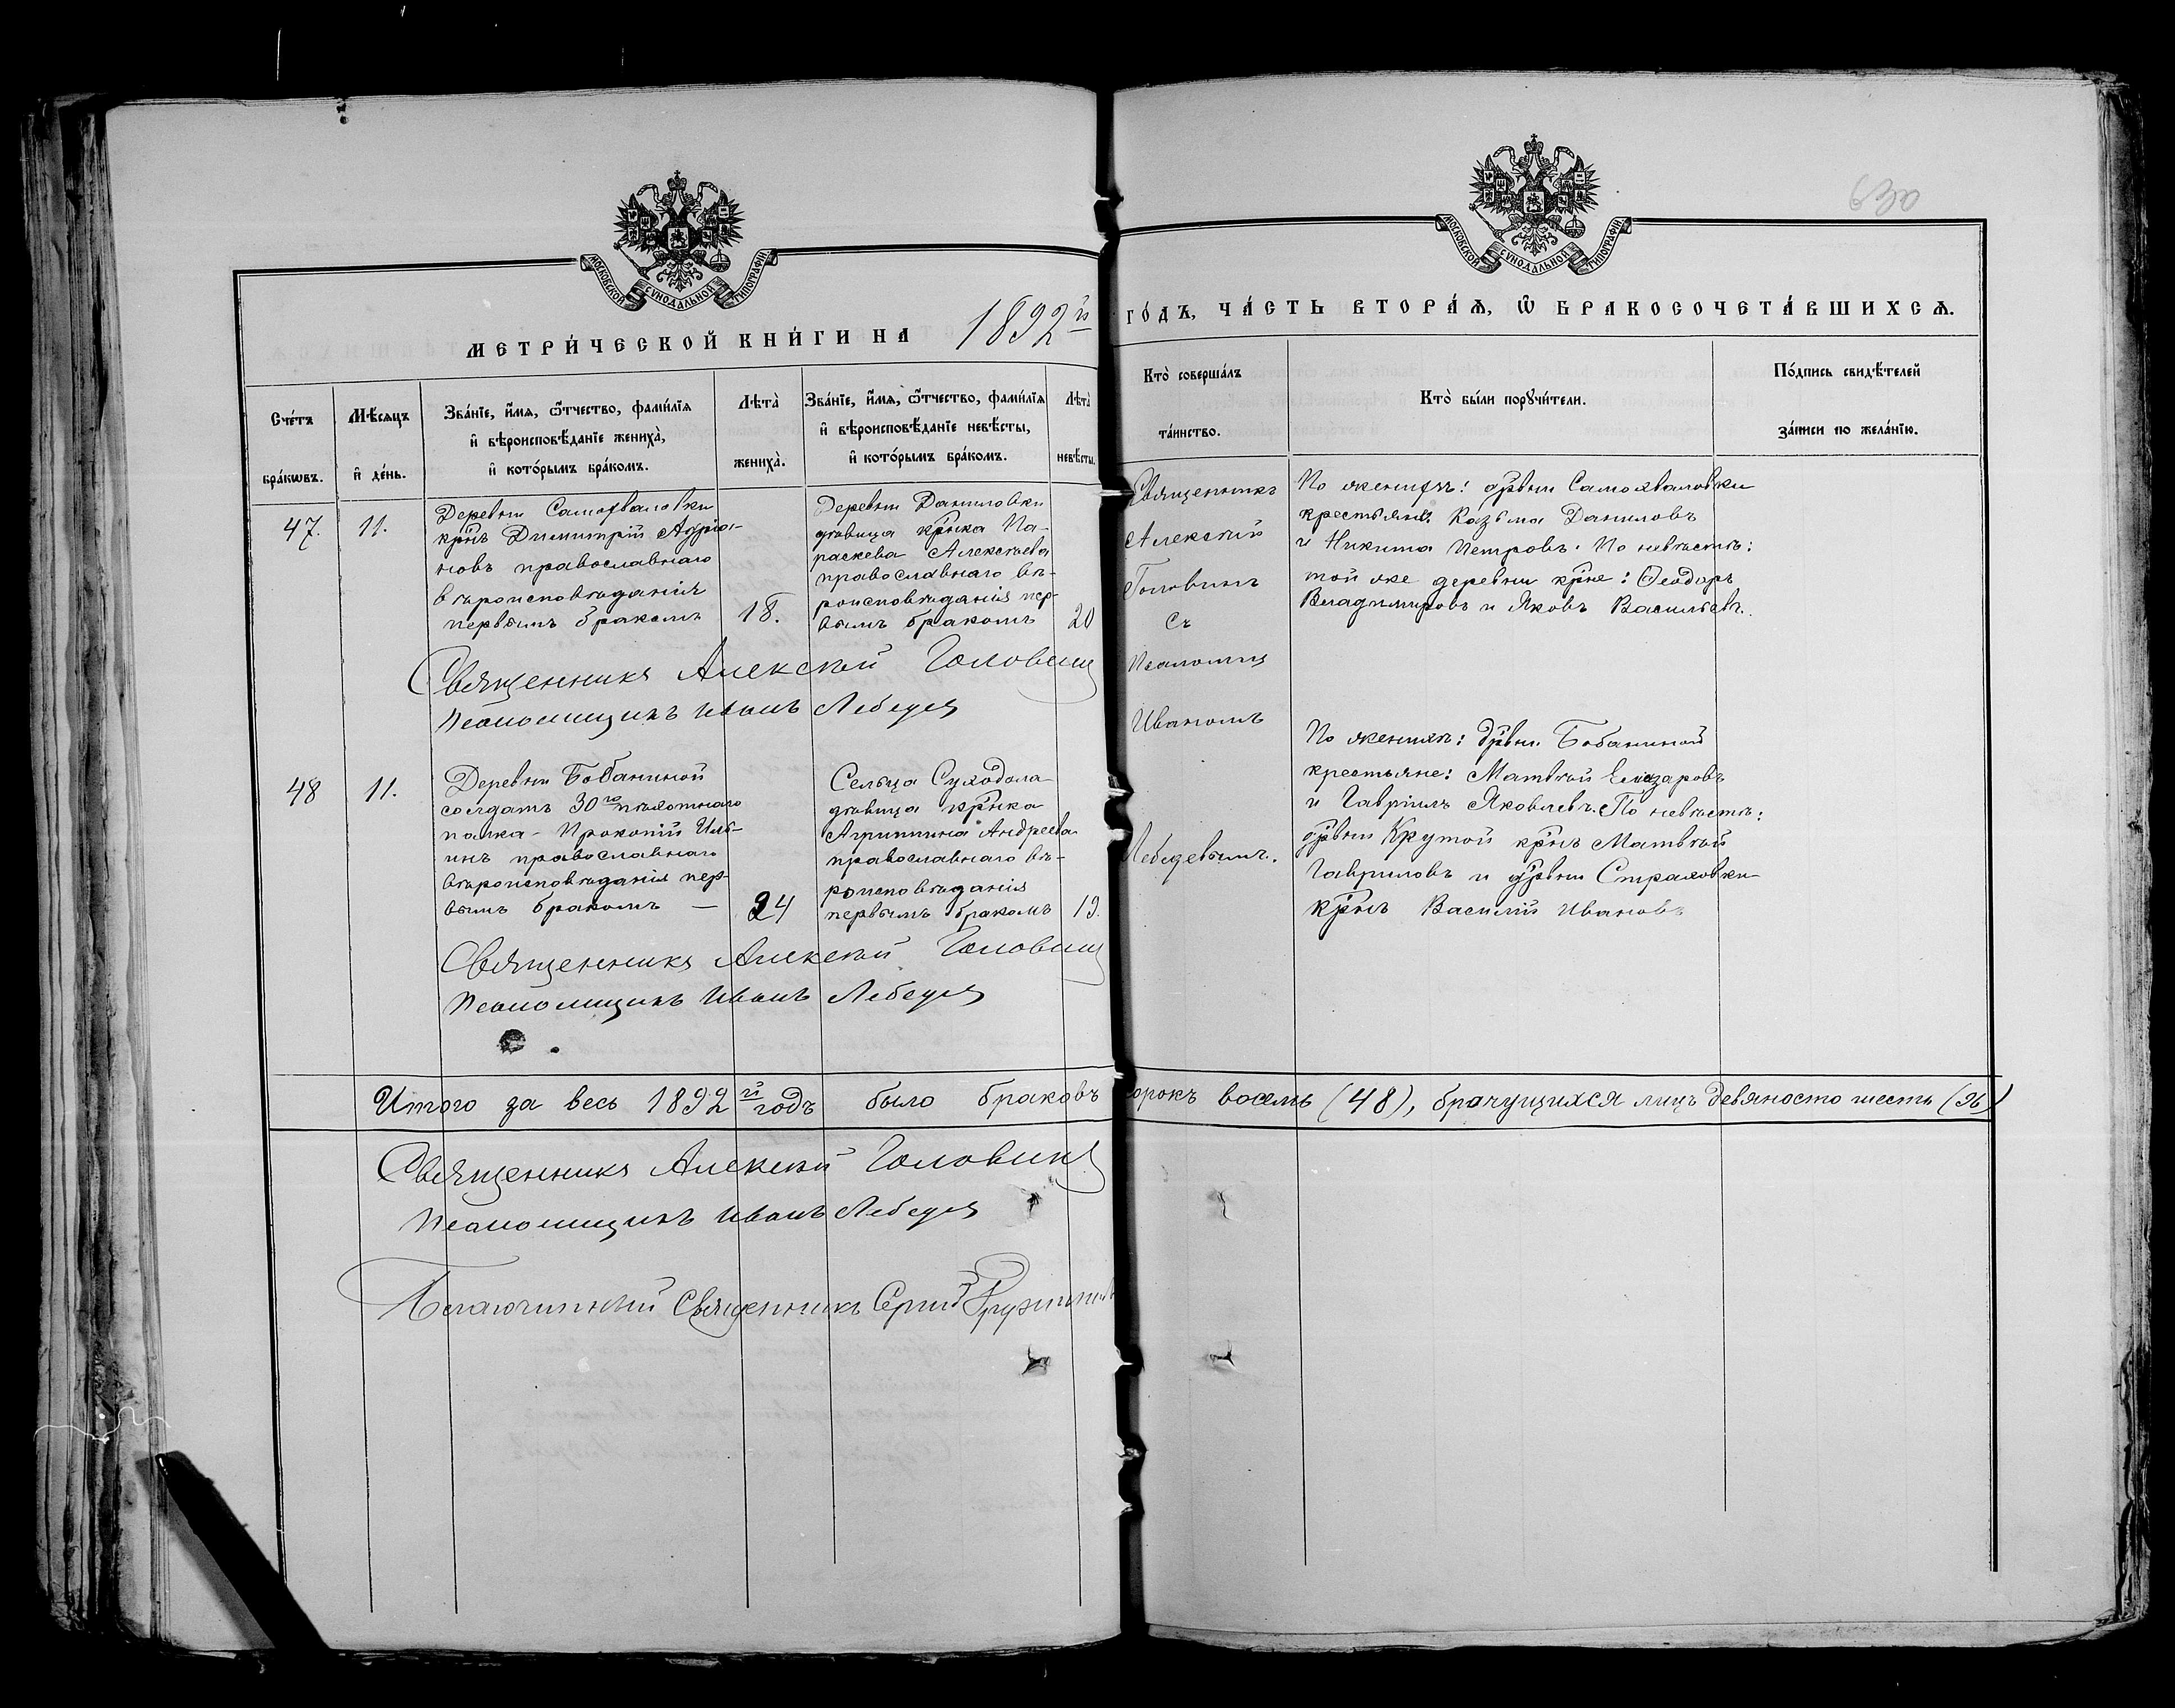 630
МОСКОВСКОЙ СѴНОДАЛЬНОЙ ТИПОГРАФІИ
МОСКОВСКОЙ СѴНОДАЛЬНОЙ ТИПОГРАФІИ
МЕТРИ́ЧЕСКОЙ КНИ́ГИ НА 1892й ГО́ДЪ, ЧА́СТЬ ВТОРА́Ѧ, Ѽ БРАКОСОЧЕТА́ВШИХСѦ.
Сче́тъ
бра́кѡвъ.
Мѣ́сяцъ
и҆ де́нь.
Зва́нїе, и҆́мѧ, ѻ҆́тчество, фами́лїѧ
и҆ вѣроисповѣ́данїе жениха̀,
и҆ кото́рымъ бра́комъ.
Лѣта̀
жениха̀.
Зва́нїе, и҆́мѧ, ѻ҆́тчество, фами́лїѧ
и҆ вѣроисповѣ́данїе невѣ́сты,
и҆ кото́рымъ бра́комъ.
Лѣта̀
невѣ́сты.
Кто̀ соверша́лъ
та́инство.
Кто̀ бы́ли порꙋчи́тели.
По́дпись свидѣ́телей
за́писи по жела́нїю.
47.
11.
Деревни Самохваловки
крнъ Димитрій Адріа-
новъ православнаго
вѣроисповѣданія
первымъ бракомъ
18.
Деревни Даниловки
дѣвица крнка Па-
раскева Алексѣева
православнаго вѣ-
роисповѣданія пер-
вымъ бракомъ
20
Священникъ
Алексѣй
Головинъ
съ
Псаломщ
Иваномъ
Лебедевымъ.
По женихѣ: дрвни Самохваловки
крестьяне Козьма Даниловъ
и Никита Петровъ. По невѣстѣ:
той же деревни крне: Ѳеодоръ
Владимировъ и Яковъ Васильевъ.
Священникъ Алексѣй Головинъ
Псаломщикъ Иванъ Лебедевъ
48
11.
Деревни Бобаниной
солдатъ 30го пѣхотнаго
полка - Прокопій Иль-
инъ православнаго
вѣроисповѣданія пер-
вымъ бракомъ —
24
Сельца Суходола
дѣвица крнка
Агриппина Андреева
православнаго вѣ-
роисповѣданія
первымъ бракомъ
19.
По женихѣ: дрвни Бобаниной
крестьяне: Матвѣй Елиазаровъ
и Гавріилъ Яковлевъ. По невѣстѣ:
дрвни Крутой крнъ Матвѣй
Гавриловъ и дрвни Страховки
крнъ Василій Ивановъ
Священникъ Алексѣй Головинъ
Псаломщикъ Иванъ Лебедевъ
Итого за весь 1892й годъ было браковъ сорокъ восемь (48), брачущихся лицъ девяносто шесть (96)
Священникъ Алексѣй Головинъ
Псаломщикъ Иванъ Лебедевъ
Благочинный Священникъ Сергій